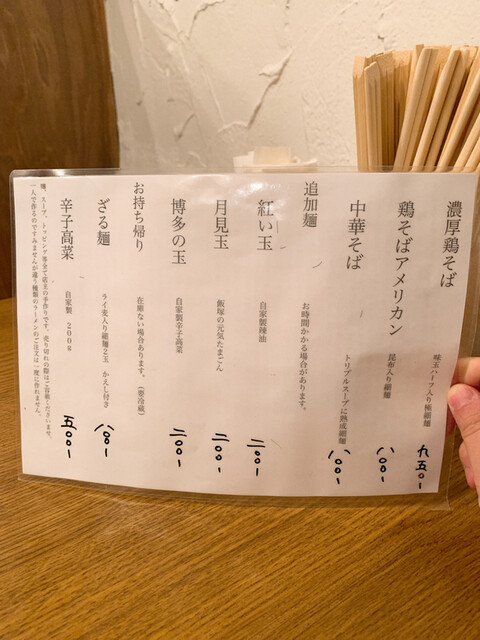 濃厚鶏そば 味玉ハーフ入り極細麺 九五〇ー
鶏そばアメリカン 昆布入り細麺 八〇〇ー
中華そば トリプルスープに熟成細麺 八〇〇ー
追加麺 お時間かかる場合があります。
紅い玉 自家製辣油 二〇〇ー
月見玉 飯塚の元気たまご 二〇〇ー
博多の玉 自家製辛子高菜 二〇〇ー
お持ち帰り 在庫ない場合あります。（要冷蔵）
ざる麺 ライ麦入り細麺2玉 かえし付き 八〇〇ー
辛子高菜 自家製 200g 五〇〇ー
麺、スープ、トッピング等全て店主の手作りです。売り切れの際はご容赦くださいませ。
一人で作るのですみませんが違う種類のラーメンのご注文は一度に作れません。